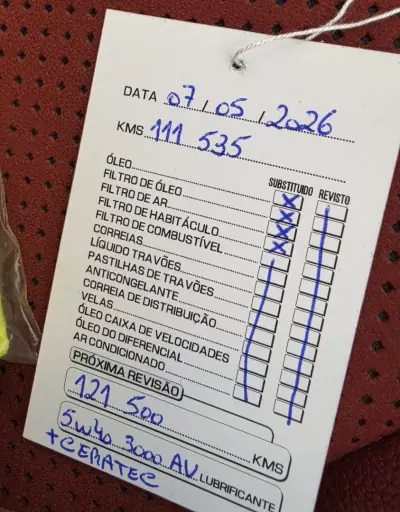 DATA 07 / 05 / 2026
KMS 111 535
SUBSTITUIDO REVISTO
ÓLEO
FILTRO DE ÓLEO
FILTRO DE AR
FILTRO DE HABITÁCULO
FILTRO DE COMBUSTÍVEL
CORREIAS
LÍQUIDO TRAVÕES
PASTILHAS DE TRAVÕES
ANTICONGELANTE
CORREIA DE DISTRIBUIÇÃO
VELAS
ÓLEO CAIXA DE VELOCIDADES
ÓLEO DO DIFERENCIAL
AR CONDICIONADO
PRÓXIMA REVISÃO
121 500 KMS
5w40 3000 AV LUBRIFICANTE
+CERATEC